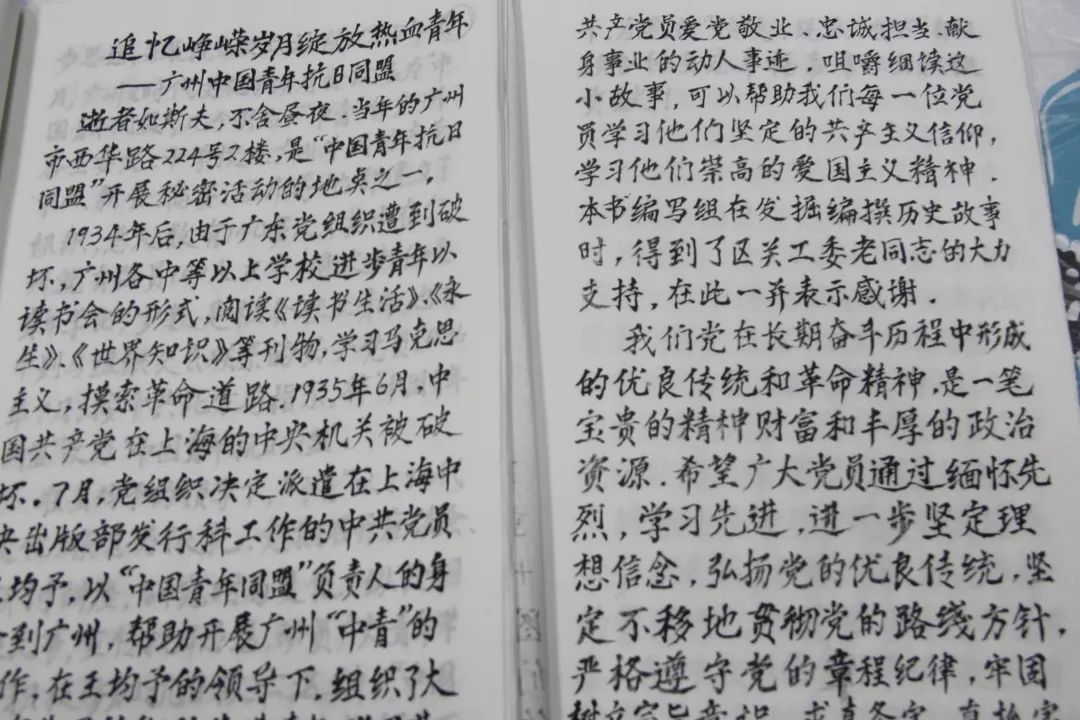 追忆峥嵘岁月绽放热血青年
——广州中国青年抗日同盟
逝者如斯夫,不舍昼夜.当年的广州
市西华路224号2楼,是“中国青年抗日
同盟”开展秘密活动的地点之一。
1934年后,由于广东党组织遭到破
坏,广州各中等以上学校进步青年以
读书会的形式,阅读《读书生活》、《永
生》、《世界知识》等刊物,学习马克思
主义,摸索革命道路.1935年6月,中
国共产党在上海的中央机关被破
坏。7月,党组织决定派遣在上海中
央出版部发行科工作的中共党员
均予,以“中国青年同盟”负责人的身
到广州,帮助开展广州“中青”的
作,在王均予的领导下.组织了大
共产党员爱党敬业、忠诚担当、献
身事业的动人事迹.咀嚼细读这
小故事,可以帮助我们每一位党
员学习他们坚定的共产主义信仰,
学习他们崇高的爱国主义精神.
本书编写组在发掘编撰历史故事
时,得到了区关工委老同志的大力
支持,在此一并表示感谢.
我们党在长期奋斗历程中形成
的优良传统和革命精神,是一笔
宝贵的精神财富和丰厚的政治
资源.希望广大党员通过缅怀先
烈,学习先进,进一步坚定理
想信念,弘扬党的优良传统,坚
定不移地贯彻党的路线方针,
严格遵守党的章程纪律,牢固